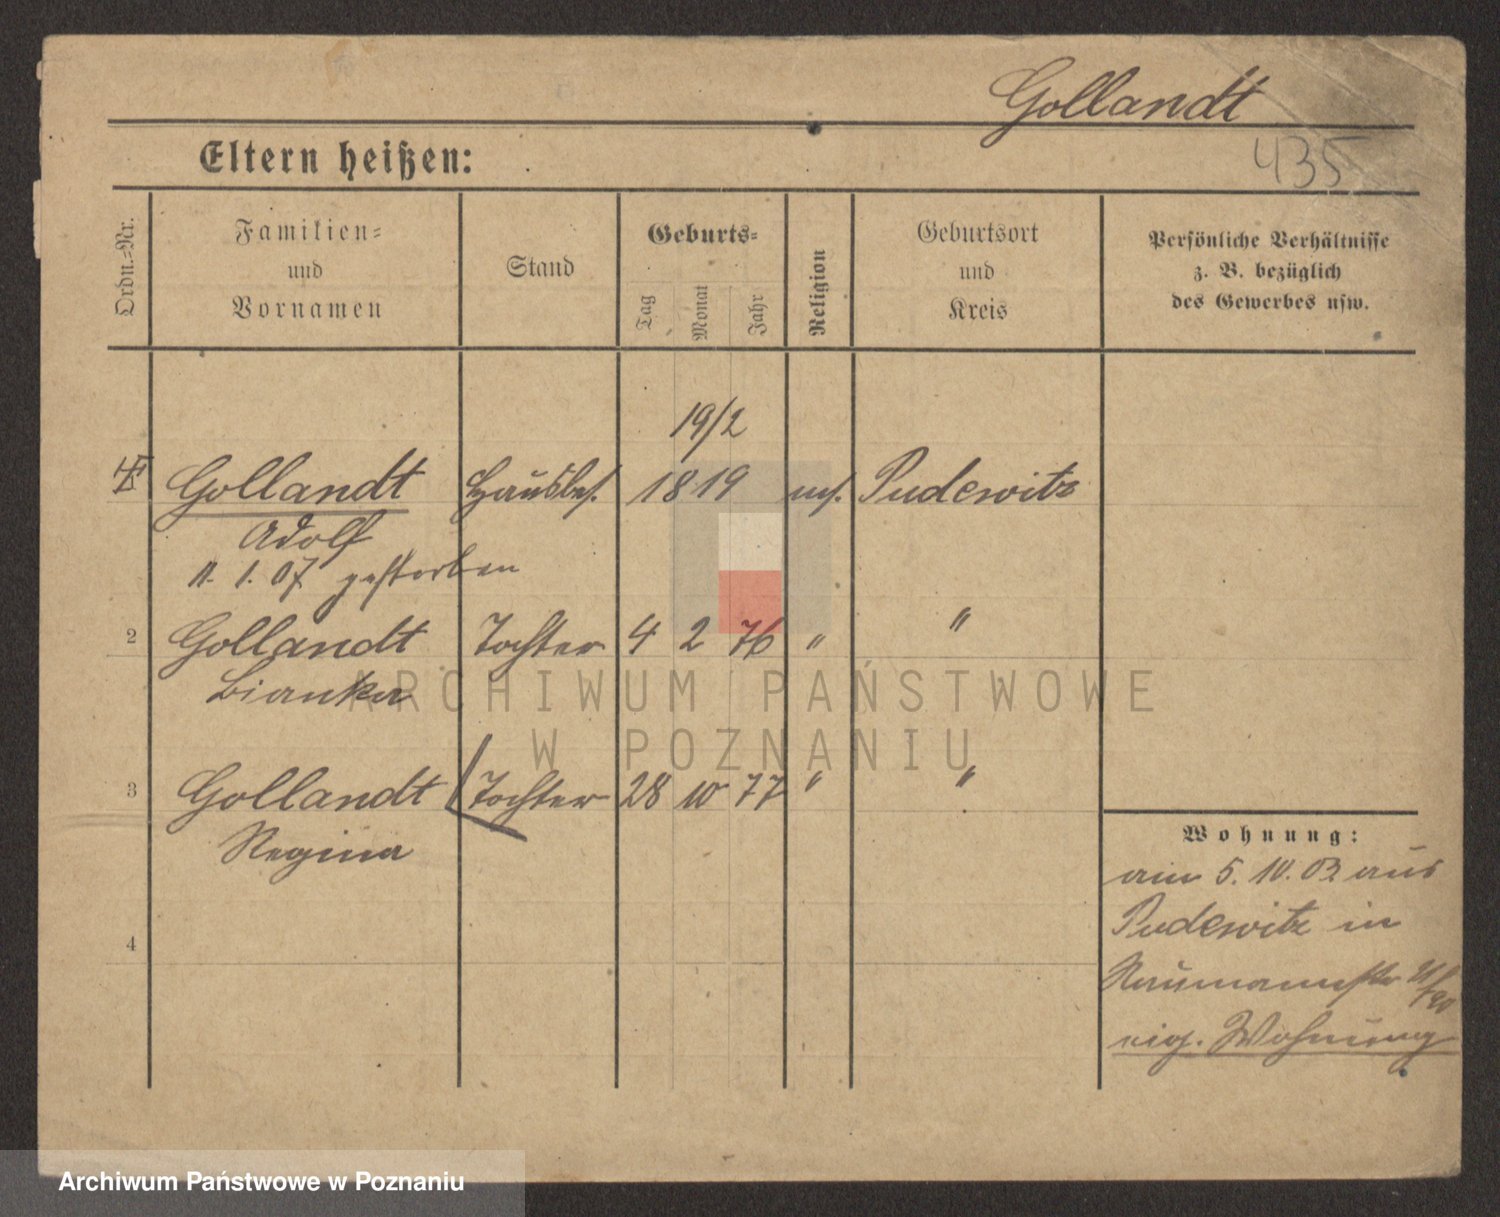 Gollandt
435
Eltern heißen:
Ordn.=Nr.
Familien=
und
Vornamen
Stand
Geburts=
Tag
Monat
Jahr
Religion
Geburtsort
und
Kreis
Persönliche Verhältnisse
z. B. bezüglich
des Gewerbes usw.
19/2
Gollandt Hausbes. 1819 mos. Pudewitz
Adolf
11. 1. 07 gestorben
2 Gollandt Tochter 4 2 76 " "
Bianka
3 Gollandt Tochter 28 10 77 " "
Regina
4
Wohnung:
am 5. 10. 03 aus
Pudewitz in
Naumannstr
eig. Wohnung
ARCHIWUM PAŃSTWOWE
W POZNANIU
Archiwum Państwowe w Poznaniu